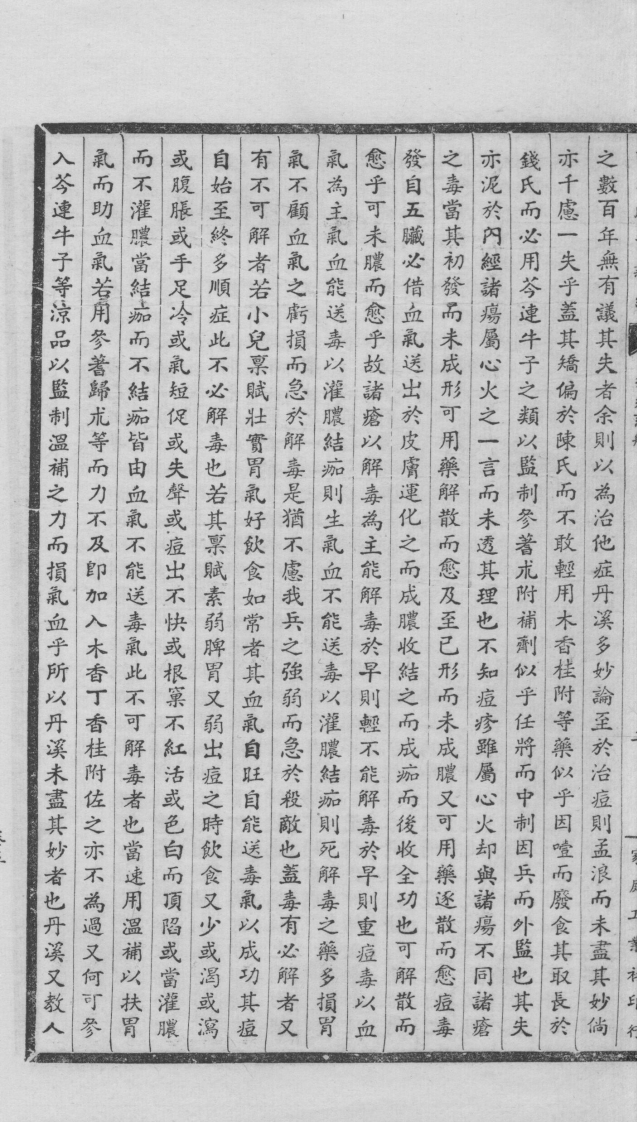 之數百年無有議其失者余則以為治他症丹溪多妙論至於治痘則孟浪而未盡其妙倘
亦千慮一失乎蓋其矯偏於陳氏而不敢輕用木香桂附等藥似乎因噎而廢食其取長於
錢氏而必用芩連牛子之類以監制參蓍朮附補劑似乎任將而中制因兵而外監也其失
亦泥於內經諸瘍屬心火之一言而未透其理也不知痘疹雖屬心火却與諸瘍不同諸瘡
之毒當其初發而未成形可用藥解散而愈及至已形而未成膿又可用藥逐散而愈痘毒
發自五臟必借血氣送出於皮膚運化之而成膿收結之而成痂而後收全功也可解散而
愈乎可未膿而愈乎故諸瘡以解毒為主能解毒於早則輕不能解毒於早則重痘毒以血
氣為主氣血能送毒以灌膿結痂則生氣血不能送毒以灌膿結痂則死解毒之藥多損胃
氣不顧血氣之虧損而急於解毒是猶不慮我兵之強弱而急於殺敵也蓋毒有必解者又
有不可解者若小兒稟賦壯實胃氣好飲食如常者其血氣自旺自能送毒氣以成功其痘
自始至終多順症此不必解毒也若其稟賦素弱脾胃又弱出痘之時飲食又少或渴或瀉
或腹脹或手足冷或氣短促或失聲或痘出不快或根窠不紅活或色白而頂陷或當灌膿
而不灌膿當結痂而不結痂皆由血氣不能送毒氣此不可解毒者也當速用溫補以扶胃
氣而助血氣若用參蓍歸朮等而力不及卽加入木香丁香桂附佐之亦不為過又何可參
入芩連牛子等涼品以監制溫補之力而損氣血乎所以丹溪未盡其妙者也丹溪又教人